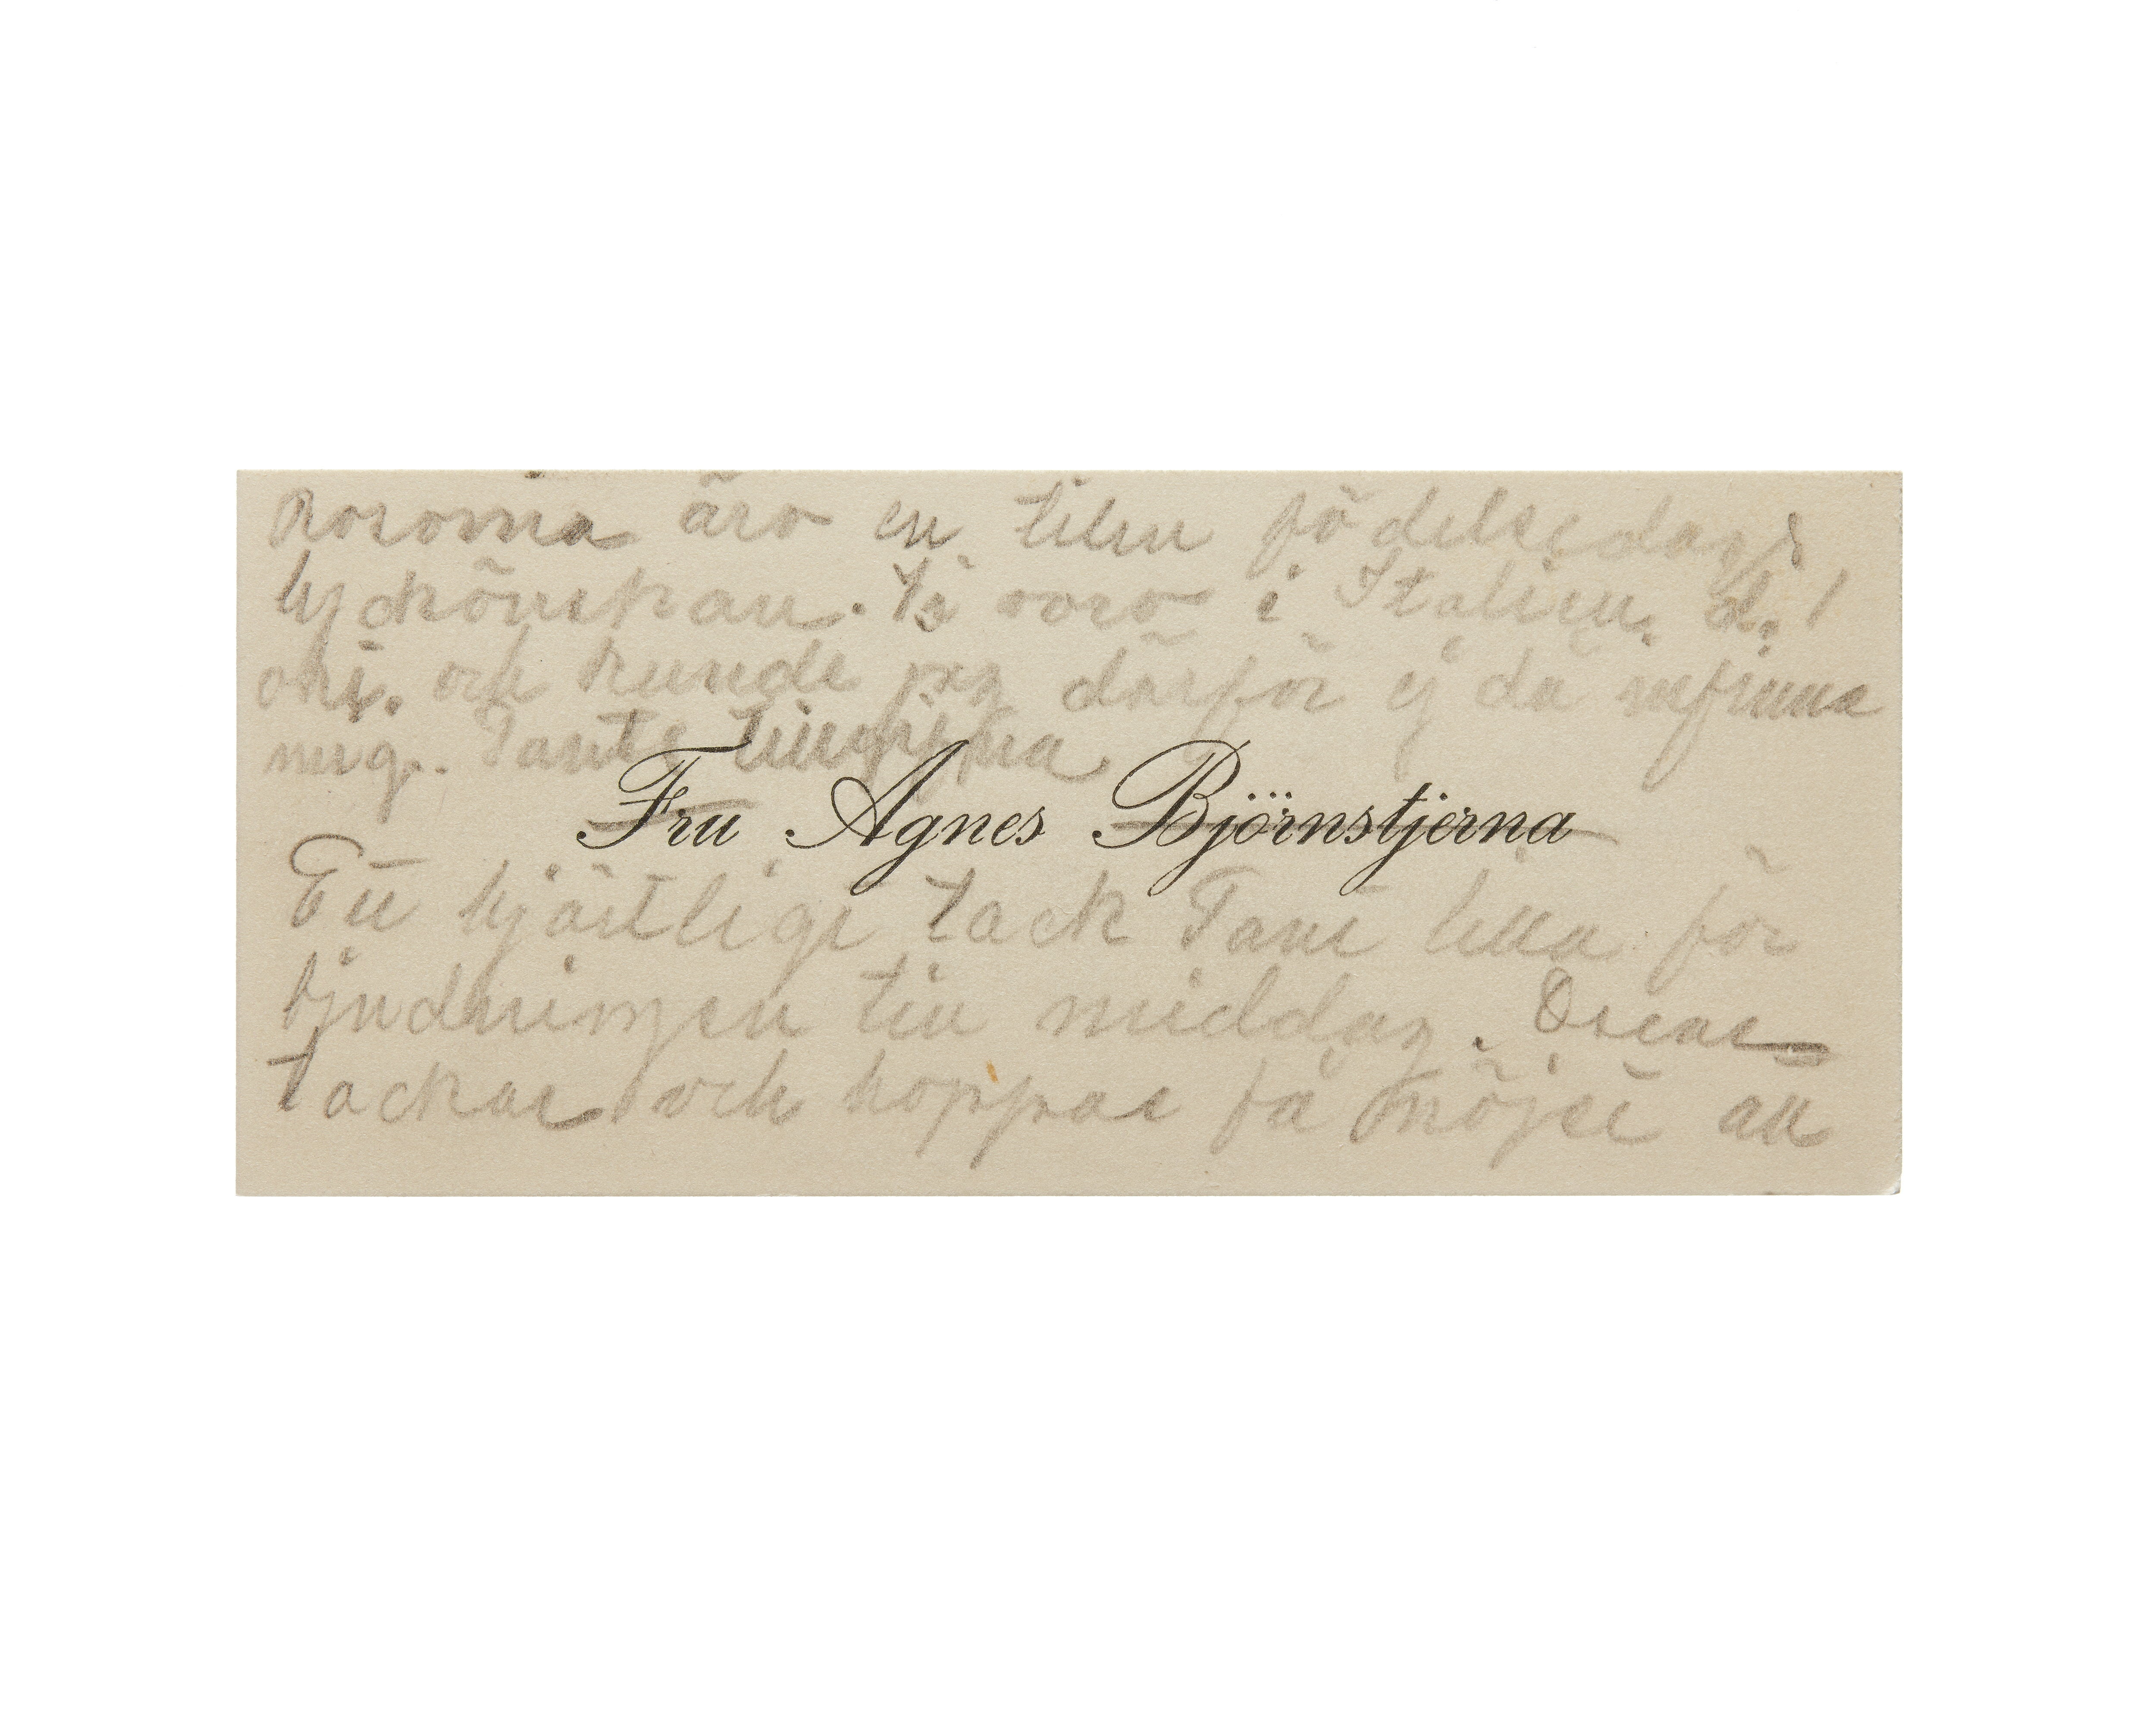 Rosorna äro en liten födelsedags
lyckönskan. Vi voro i Italien. d. 1
okt. och kunde jag därför ej då infinna
mig. Tants tillgifna
Fru Agnes Björnstjerna
Ett hjärtligt tack Tant lilla för
bjudningen till middag. Oscar
tackar och hoppas få nöjet att